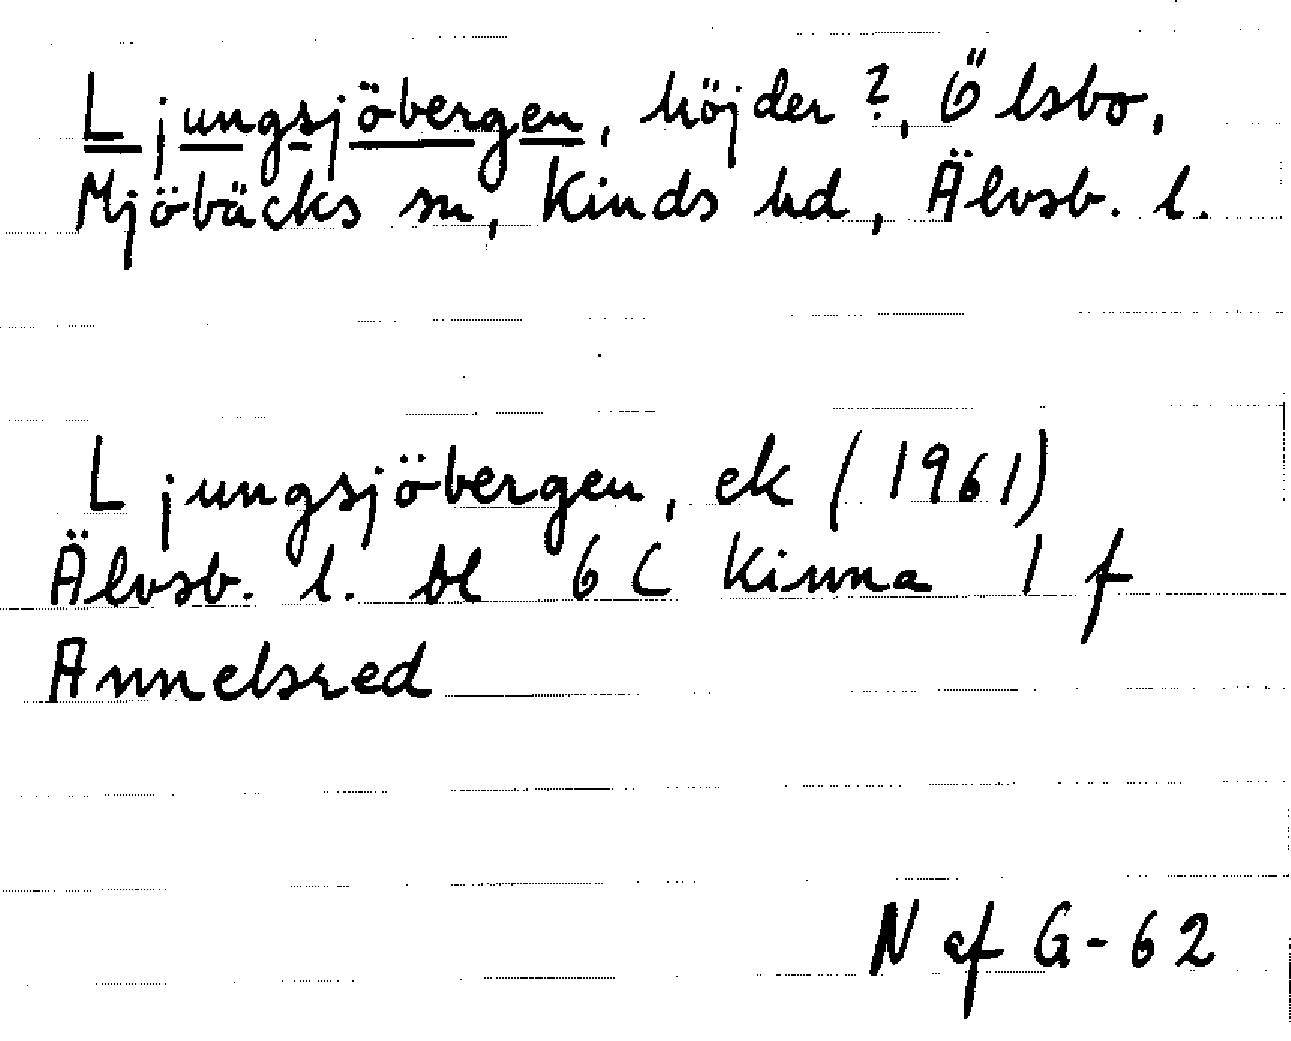 Ljungsjöbergen, höjder?, Ölsbo,
Mjöbäcks sn, Kinds hd, Älvsb. l.
Ljungsjöbergen, ek (1961)
Älvsb. l. bl 6 C Kinna 1 f
Annelsred
N af G-62